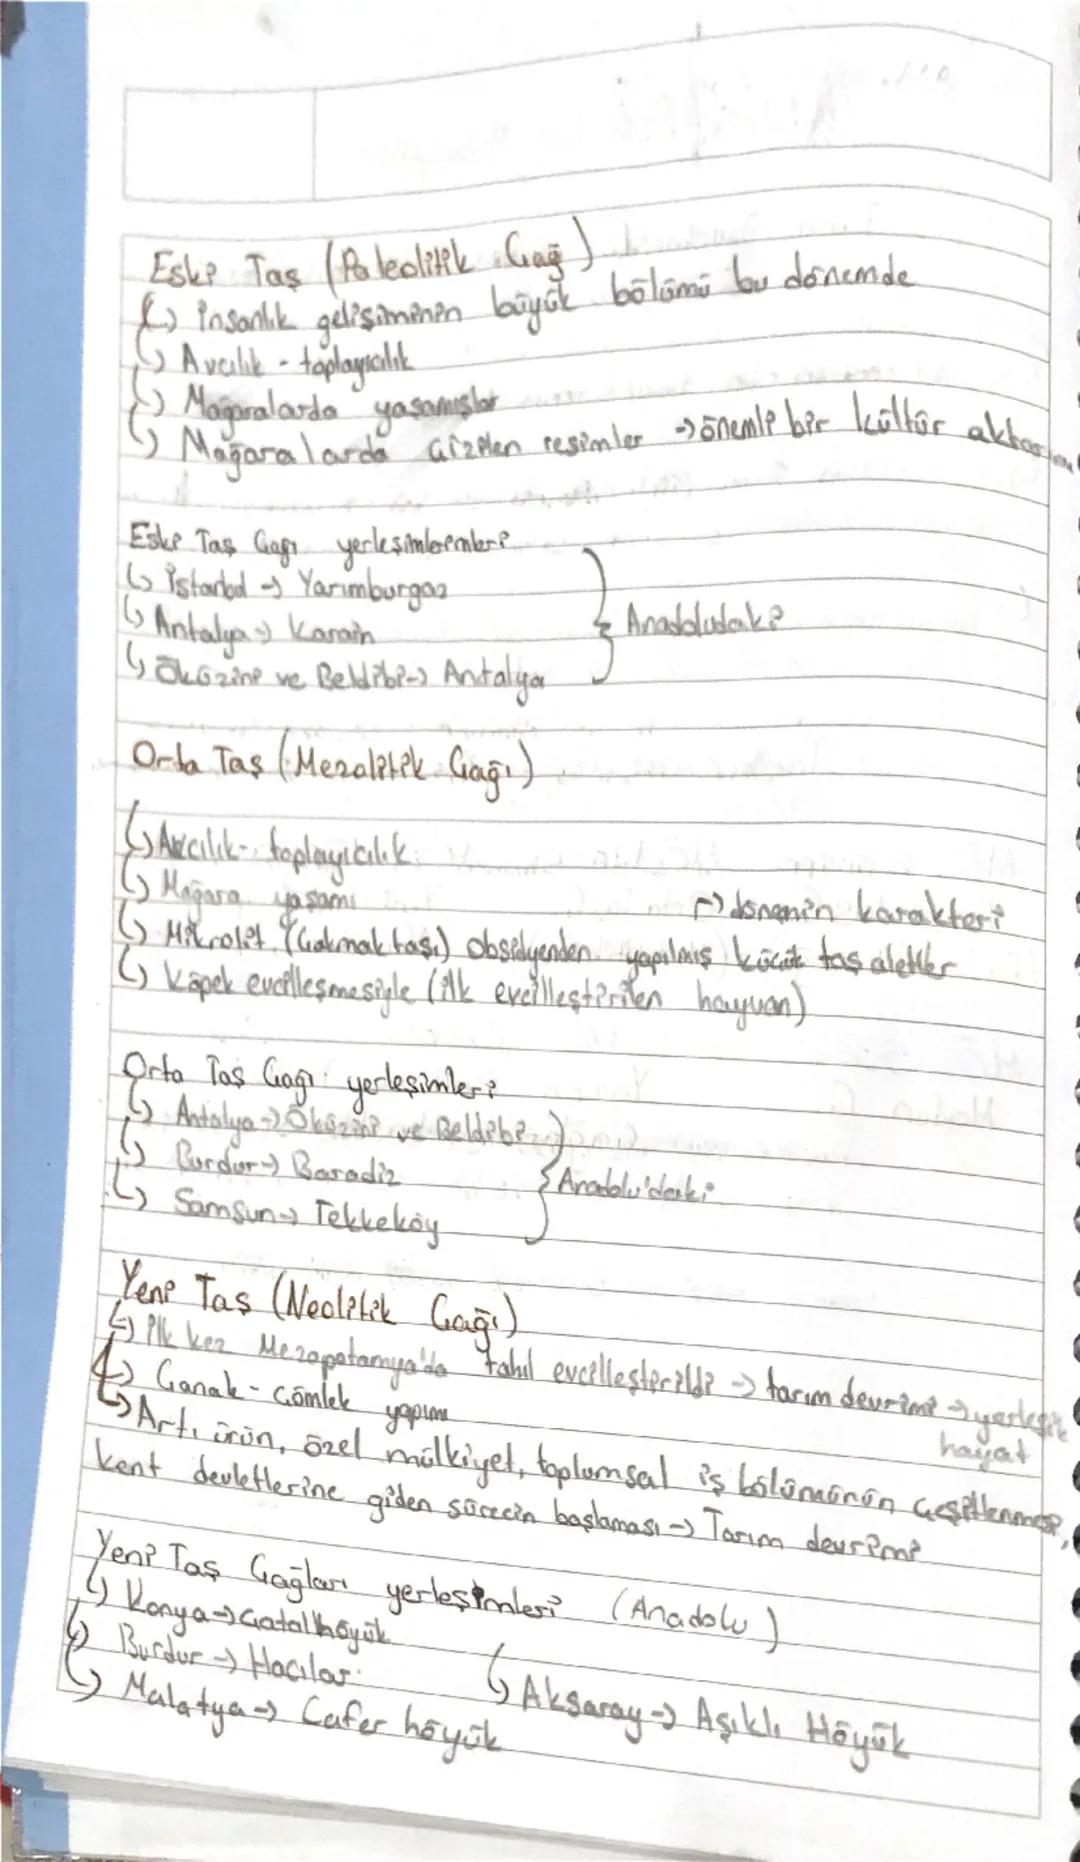 Eski Taş (Paleolitik Çağ)
↳ insanlık gelişiminin büyük bölümü bu dönemde
↳ Avcılık - toplayıcılık
↳ Mağaralarda yaşamışlar
↳ Mağaralarda çizilen resimler → önemli bir kültür
Eski Taş Çağı
↳ İstanbul → Yarımburgaz
↳ Antalya → Karain
↳ Öküzini ve Beldibi → Antalya
Anadoludaki
Orta Taş (Mezolitik Çağı)
↳ Avcılık - toplayıcılık
↳ Mağara yaşamı
→ dönemin karakteri
↳ Mikrolit (Çakmak taşı) obsidyenden yapılmış küçük taş aletler
↳ Köpek evcilleşmesiyle (ilk evcilleştirilen hayvan)
Orta Taş Çağı yerleşimleri
↳ Antalya → Öküzini ve Beldibi
↳ Burdur → Baradiz
↳ Samsun → Tekkeköy
Anadolu'daki
Yeni Taş (Neolitik Çağı)
↳ ilk kez Mezapotamya'da tahıl evcilleştirildi → tarım devrimi → yerleşik
hayat
↳ Çanak - çömlek yapımı
↳ Artı ürün, özel mülkiyet, toplumsal iş bölümünün çeşitlenmesi,
kent devletlerine giden sürecin başlaması → Tarım devrimi
Yeni Taş Çağları yerleşimleri (Anadolu)
↳ Konya → Çatalhöyük
↳ Burdur → Hacılar
↳ Aksaray → Aşıklı Höyük
↳ Malatya → Cafer höyük